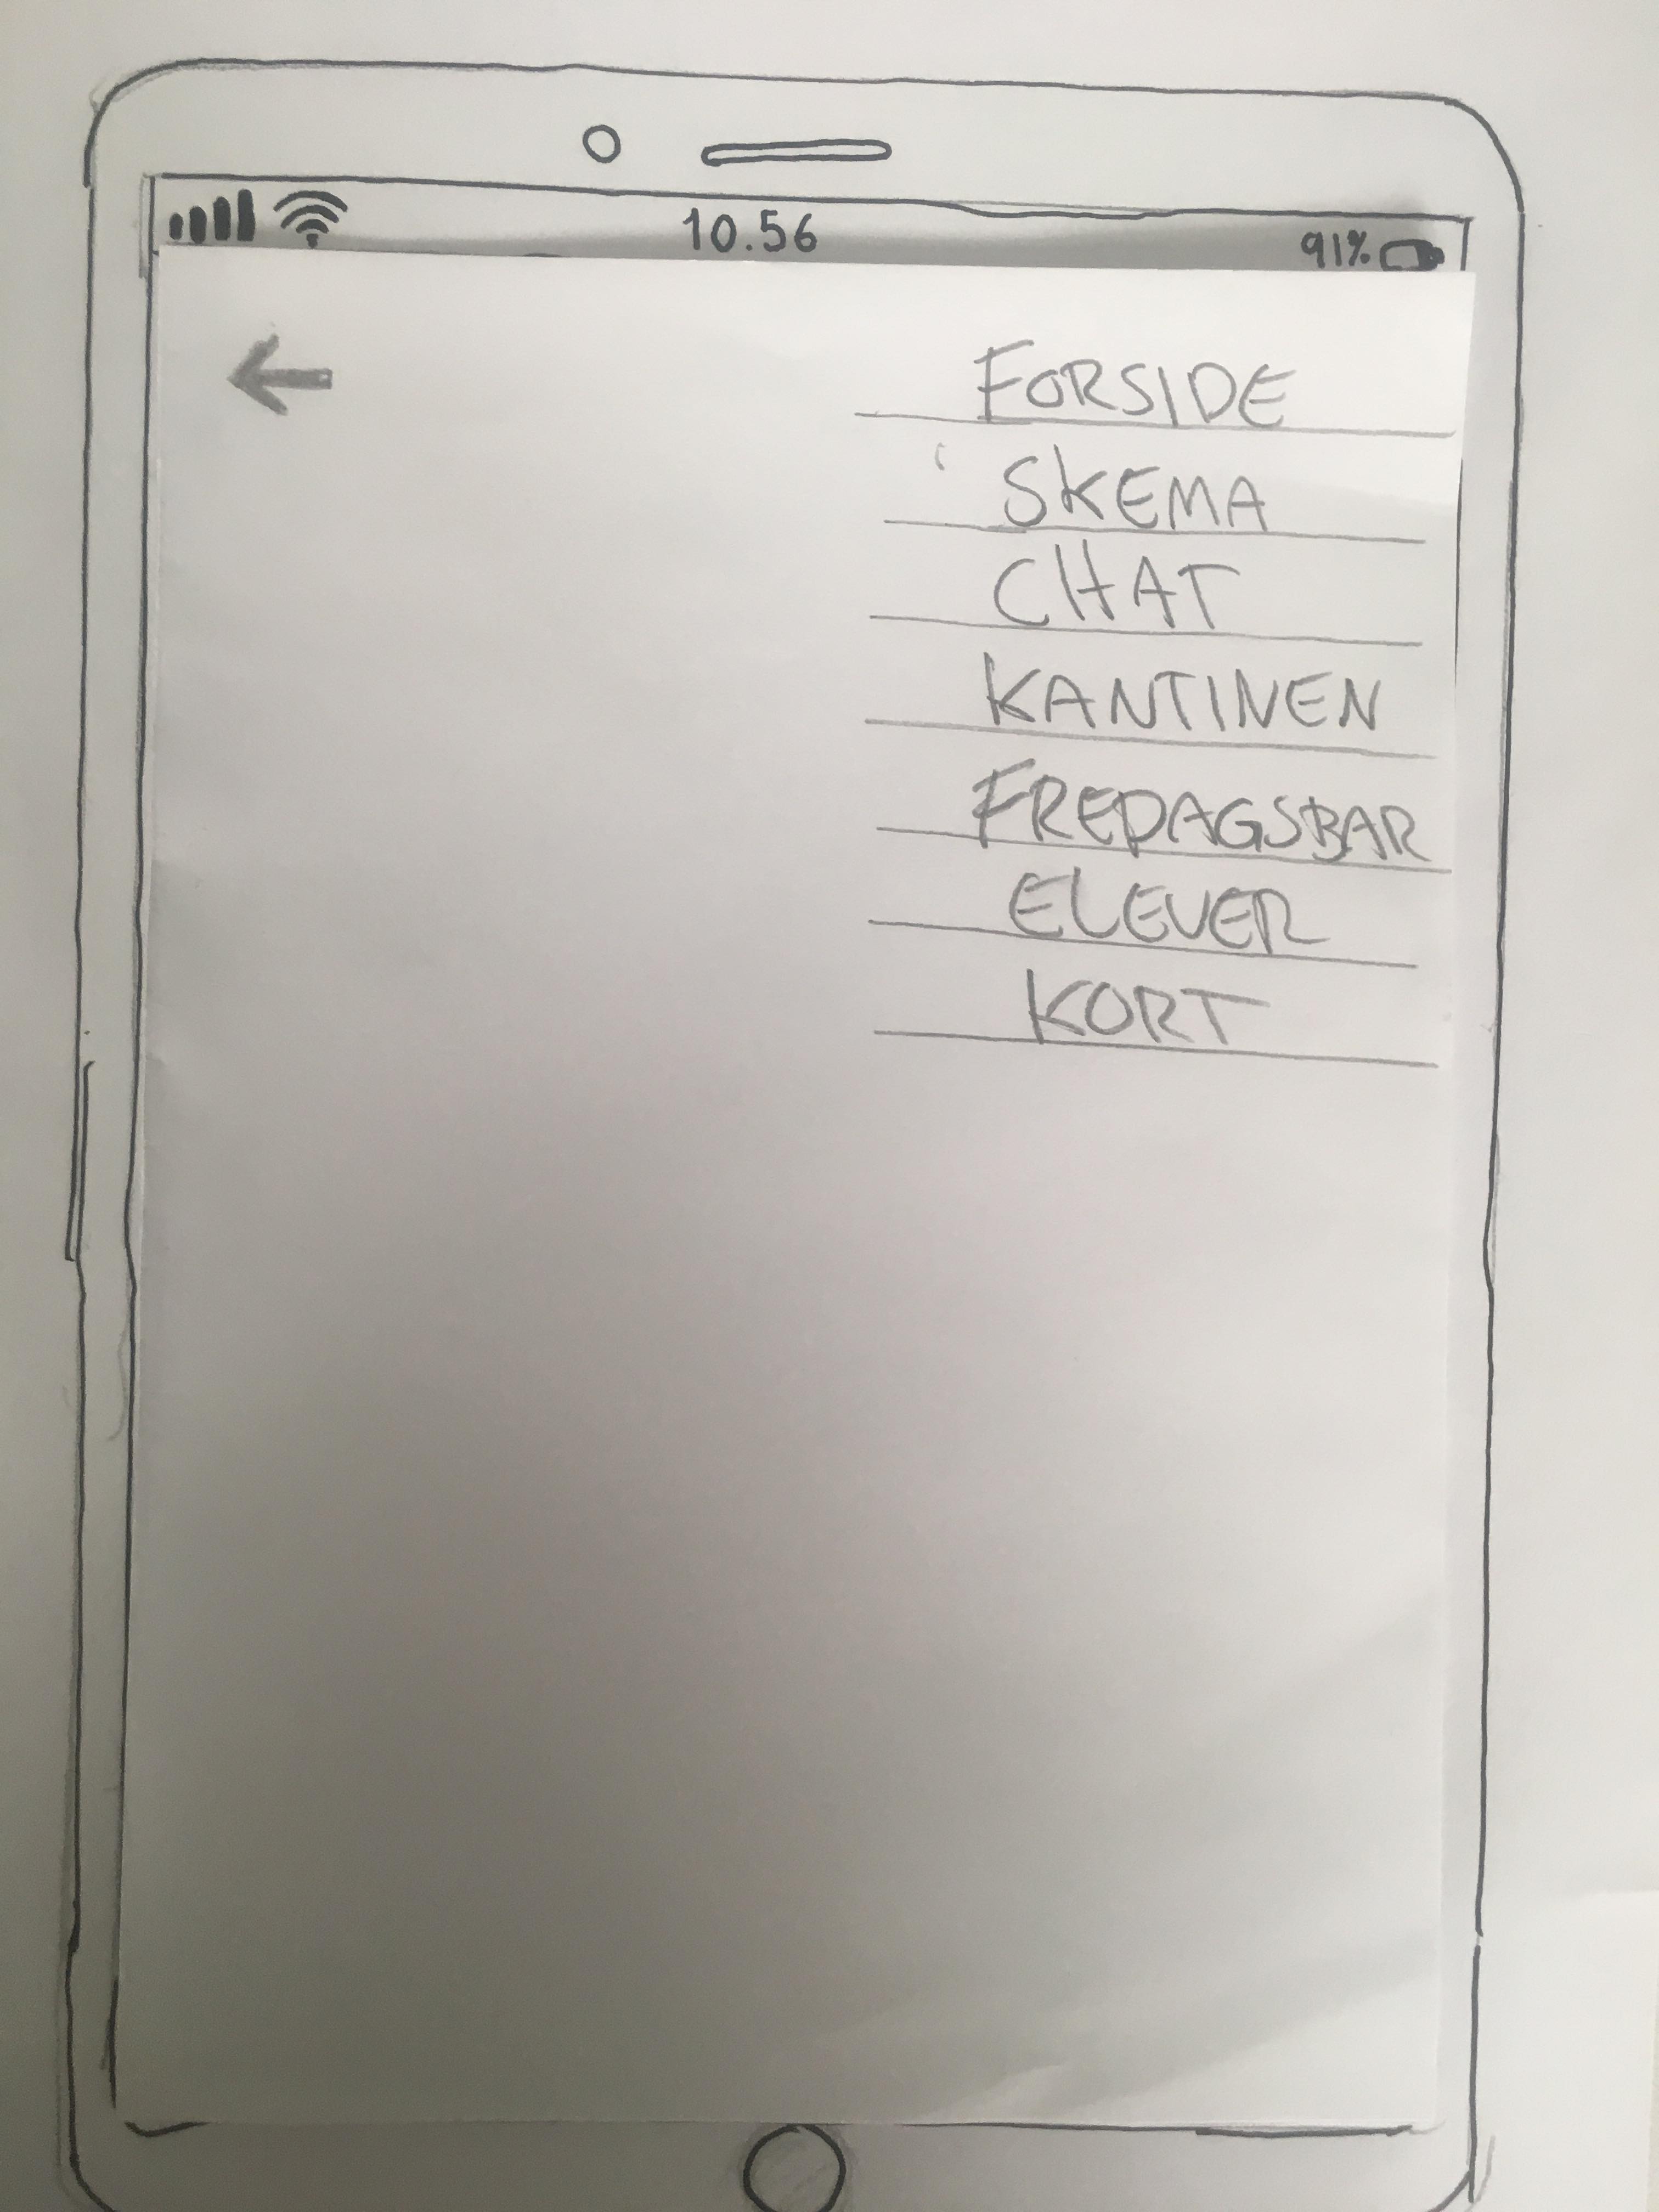 10.56
91%
FORSIDE
SKEMA
CHAT
KANTINEN
FREDAGSBAR
ELEVER
KORT